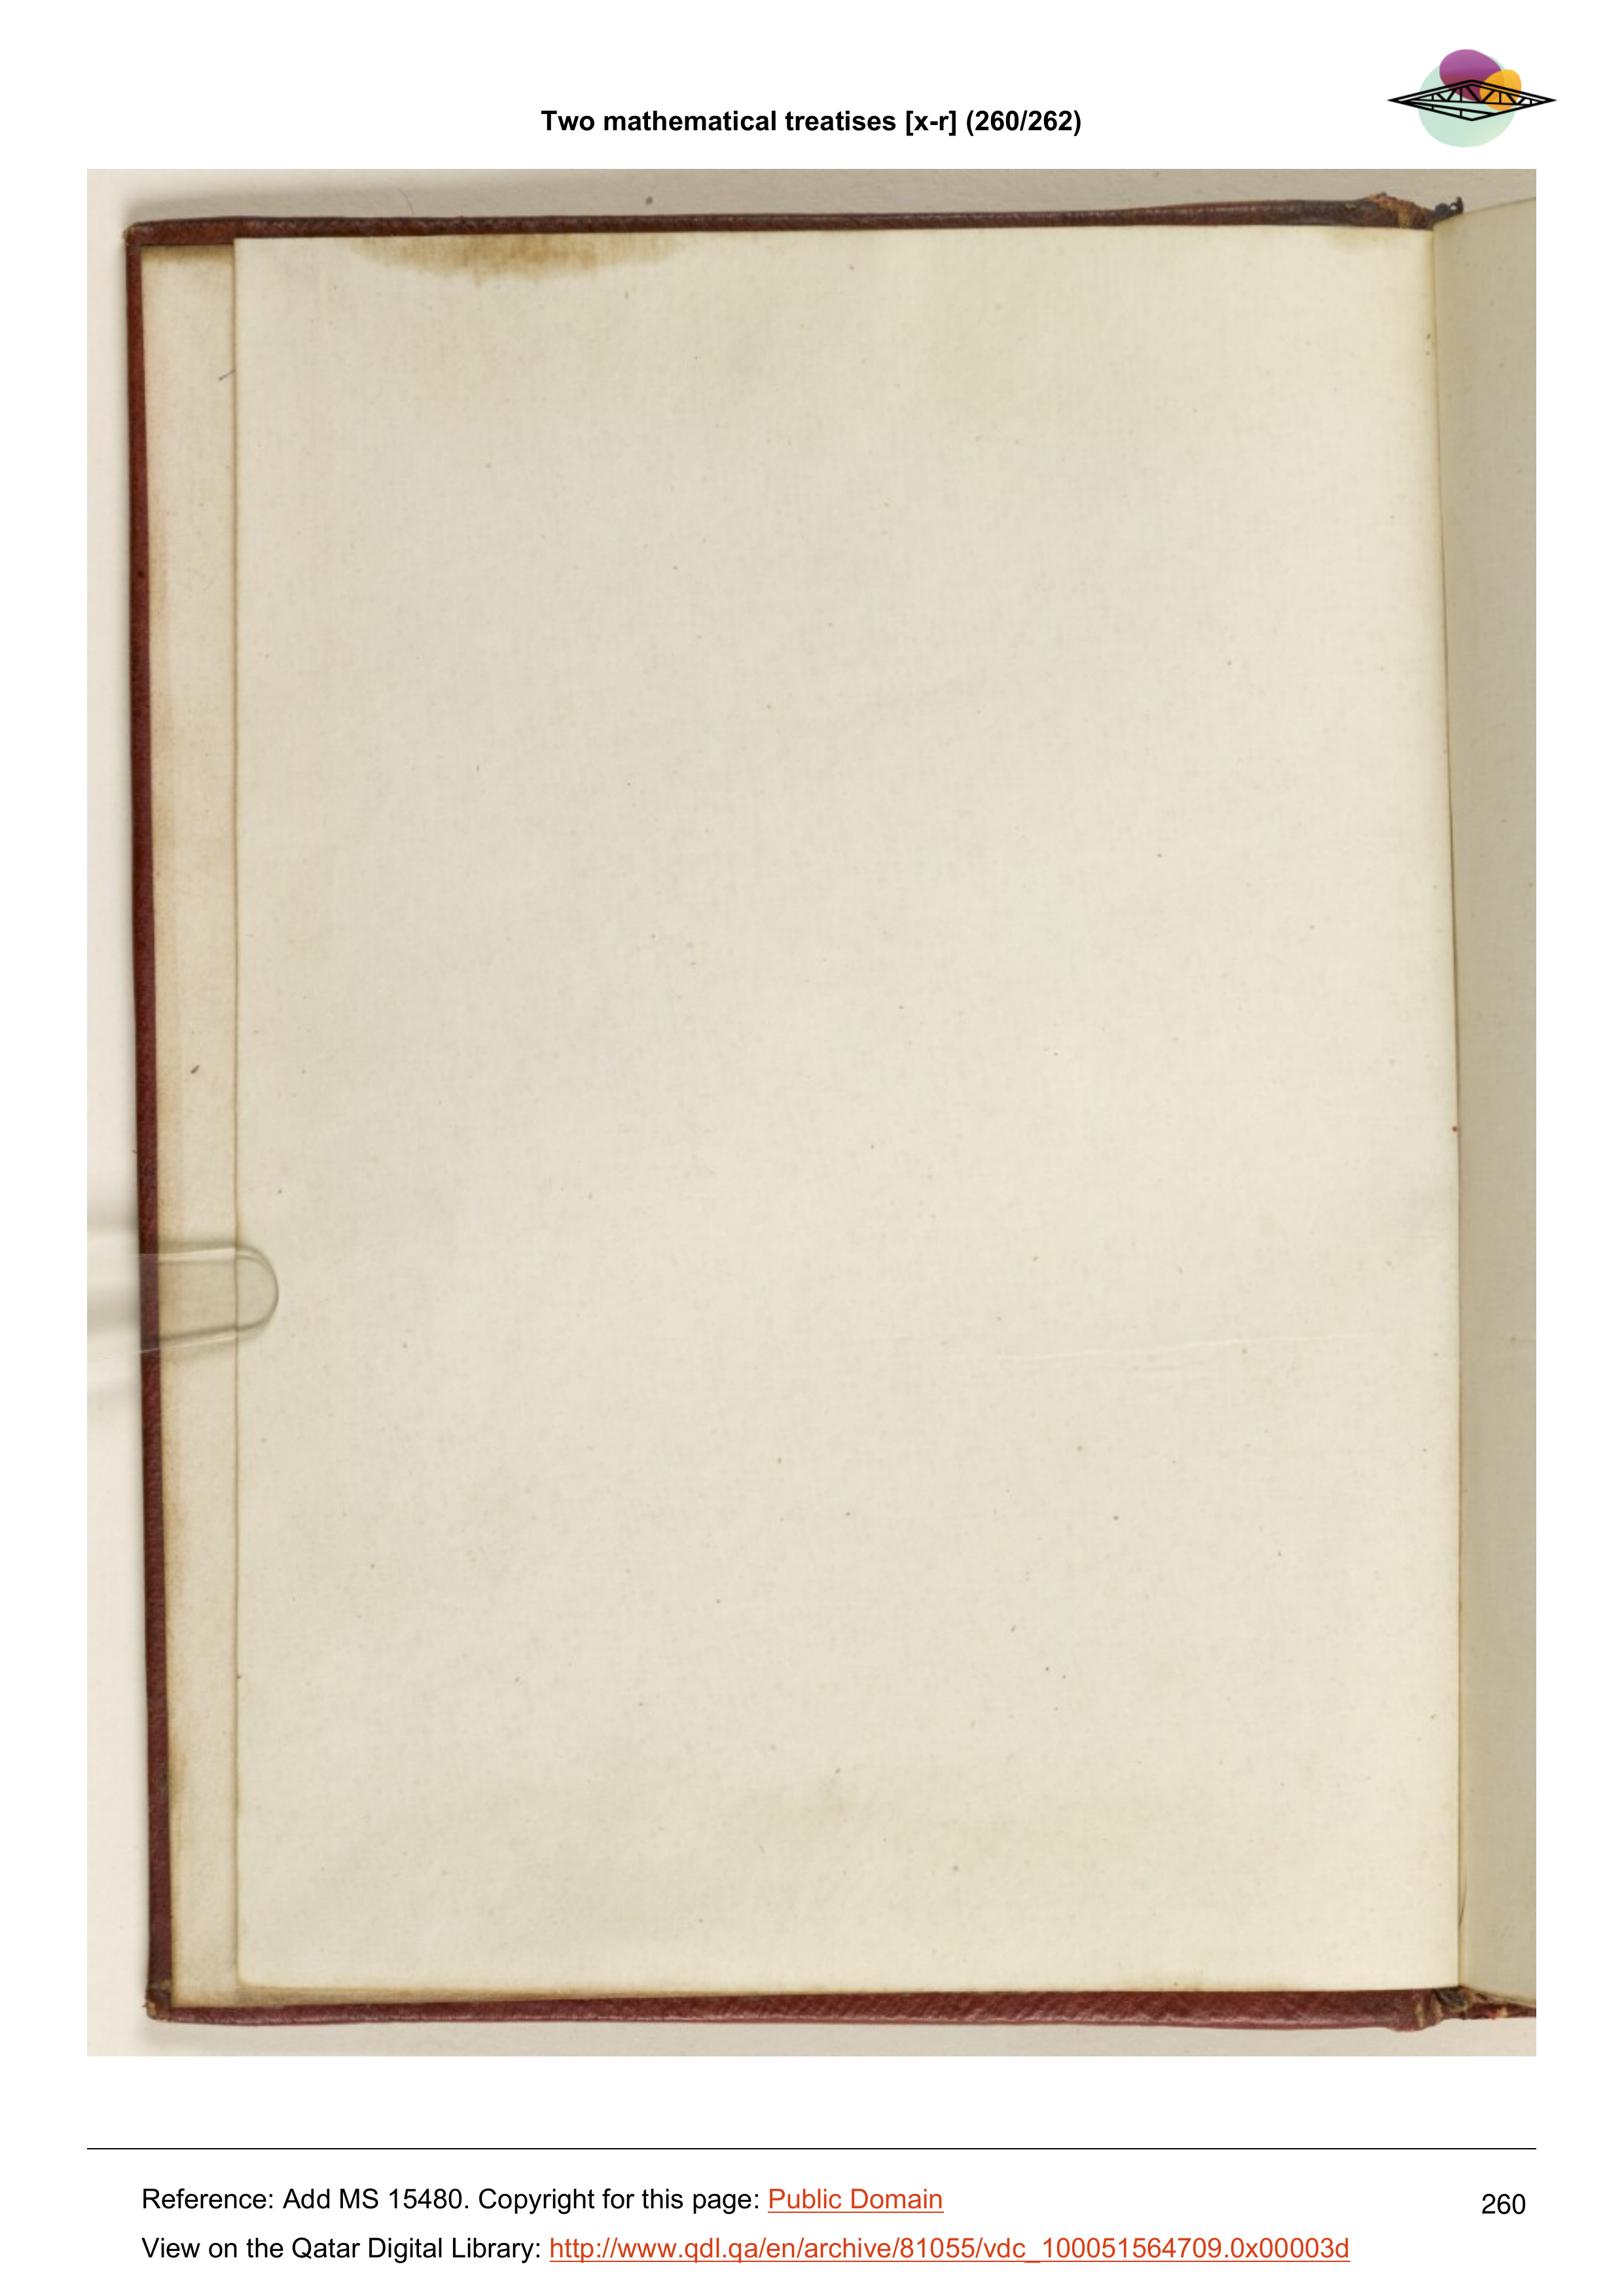 Two mathematical treatises [x-r] (260/262)
Reference: Add MS 15480. Copyright for this page: Public Domain
260
View on the Qatar Digital Library: http://www.qdl.qa/en/archive/81055/vdc_100051564709.0x00003d